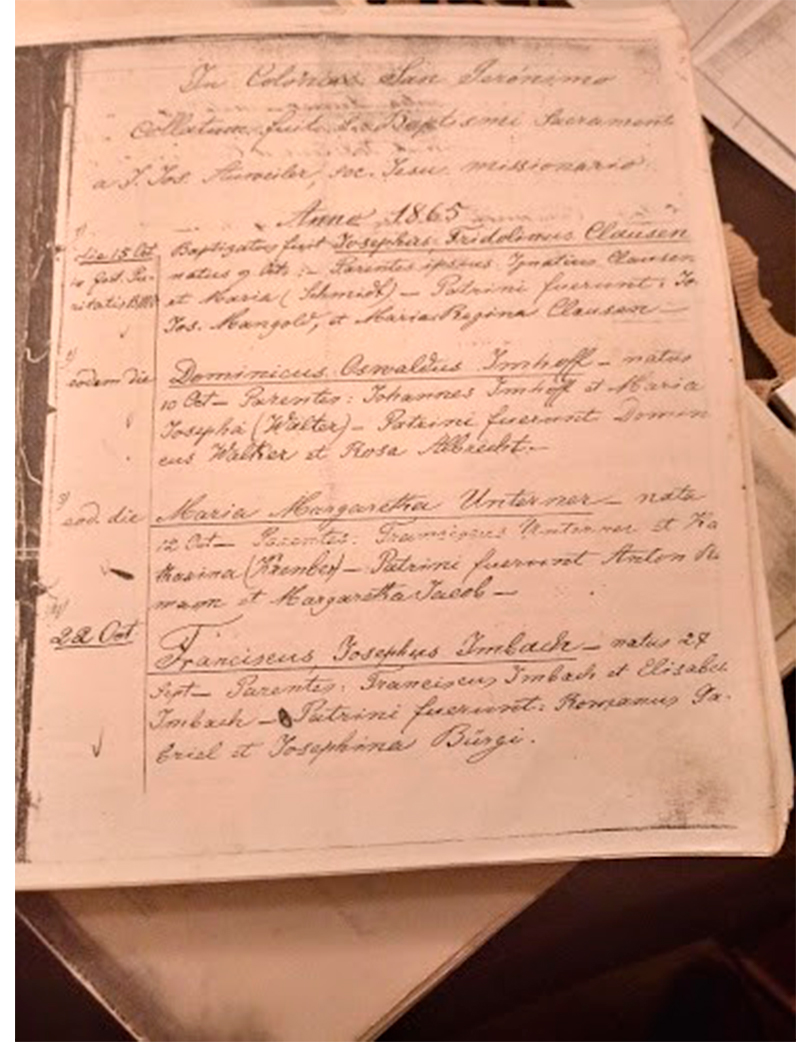 In Colonia San Jerónimo
Collatum fuit S. Baptismi Sacrament
a P. Jos. Auweiler, soc. Jesu missionario.
Anno 1865
1)
die 15 Oct.
in fest. Pu-
ritatis BMV
Baptizatus fuit Josephus Fridolinus Clausen
natus 9 Oct. — Parentes ipsius Ignatius Clausen
et Maria (Schmidt) — Patrini fuerunt: Jo.
Jos. Mangold, et Maria Regina Clausen —
2)
eodem die
Dominicus Oswaldus Imhoff — natus
10 Oct — Parentes: Johannes Imhoff et Maria
Josepha (Walter) — Patrini fuerunt Domin
cus Walker et Rosa Albrecht. —
3)
eod. die
Maria Margaretha Unterner — nata
12 Oct — Parentes: Franciscus Unterner et Ka
tharina — Patrini fuerunt Anton
mann et Margaretha Jacob —
4)
22 Oct
Franciscus Josephus Imbach — natus 27
Sept — Parentes: Franciscus Imbach et Elisabet
Imbach — Patrini fuerunt: Romanus Ga-
briel et Josephina Bürgi.